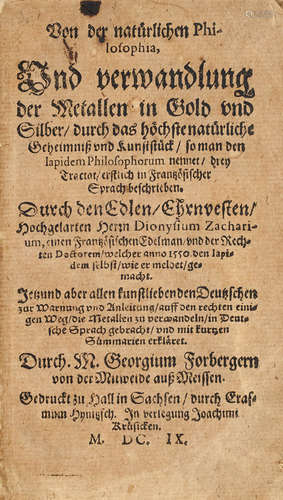 Von der natürlichen Phi-
losophia,
Vnd verwandlung
der Metallen in Gold vnd
Silber/ durch das höchste natürlich-
Geheimniß vnd Kunststück/ so man den
lapidem Philosophorum nennet/ drey
Tractat/ erstlich in Frantzösischer
Sprach beschrieben.
Durch den Edlen/ Ehrnvesten/
Hochgelarten Herrn Dionysium Zachari-
um, einen Frantzösischen Edelman/ vnd der Rech-
ten Doctorem/ welcher anno 1550. den lapi-
dem selbst/ wie er meldet/ ge-
macht.
Jetzund aber allen kunstliebenden Deutschen
zur Warnung vnd Anleitung/ auff den rechten eini-
gen Weg/ die Metallen zu verwandeln/ in Deut-
sche Sprach gebracht/ vnd mit kurtzen
Summarien erkläret.
Durch. M. Georgium Forbergern
von der Mitweide auß Meissen.
Gedruckt zu Hall in Sachsen/ durch Eras-
mum Hynitzsch. In verlegung Joachimi
Krüsicken.
M. DC. IX.